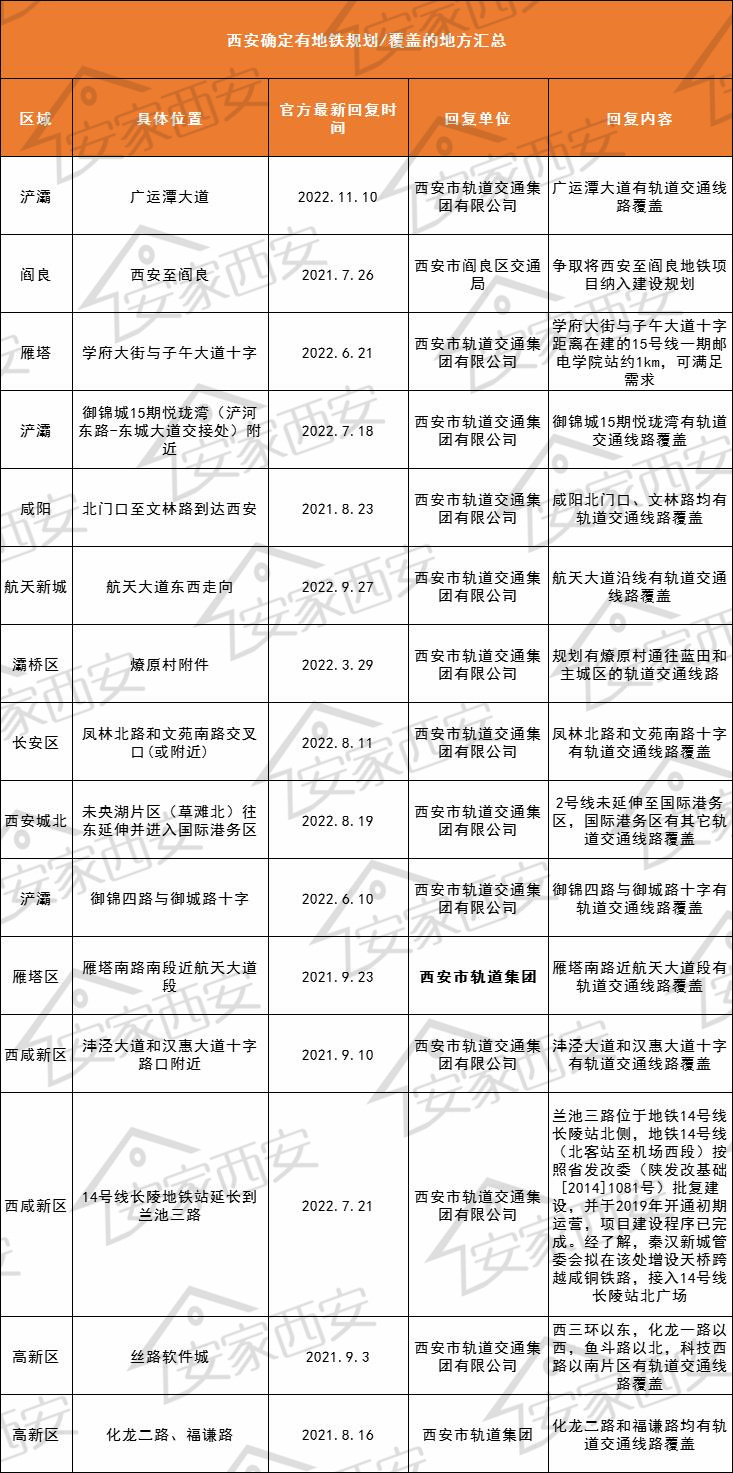 西安确定有地铁规划/覆盖的地方汇总
区域
具体位置
官方最新回复时
间
回复单位
回复内容
浐灞
广运潭大道
2022.11.10
西安市轨道交通集
团有限公司
广运潭大道有轨道交通线
路覆盖
阎良
西安至阎良
2021.7.26
西安市阎良区交通
局
争取将西安至阎良地铁项
目纳入建设规划
雁塔
学府大街与子午大道十字
2022.6.21
西安市轨道交通集
团有限公司
学府大街与子午大道十字
距离在建的15号线一期邮
电学院站约1km，可满足
需求
浐灞
御锦城15期悦珑湾（浐河
东路-东城大道交接处）附
近
2022.7.18
西安市轨道交通集
团有限公司
御锦城15期悦珑湾有轨道
交通线路覆盖
咸阳
北门口至文林路到达西安
2021.8.23
西安市轨道交通集
团有限公司
咸阳北门口、文林路均有
轨道交通线路覆盖
航天新城
航天大道东西走向
2022.9.27
西安市轨道交通集
团有限公司
航天大道沿线有轨道交通
线路覆盖
灞桥区
燎原村附件
2022.3.29
西安市轨道交通集
团有限公司
规划有燎原村通往蓝田和
主城区的轨道交通线路
长安区
凤林北路和文苑南路交叉
口(或附近)
2022.8.11
西安市轨道交通集
团有限公司
凤林北路和文苑南路十字
有轨道交通线路覆盖
西安城北
未央湖片区（草滩北）往
东延伸并进入国际港务区
2022.8.19
西安市轨道交通集
团有限公司
2号线未延伸至国际港务
区，国际港务区有其它轨
道交通线路覆盖
浐灞
御锦四路与御城路十字
2022.6.10
西安市轨道交通集
团有限公司
御锦四路与御城路十字有
轨道交通线路覆盖
雁塔区
雁塔南路南段近航天大道
段
2021.9.23
西安市轨道集团
雁塔南路近航天大道段有
轨道交通线路覆盖
西咸新区
沣泾大道和汉惠大道十字
路口附近
2021.9.10
西安市轨道交通集
团有限公司
沣泾大道和汉惠大道十字
有轨道交通线路覆盖
西咸新区
14号线长陵地铁站延长到
兰池三路
2022.7.21
西安市轨道交通集
团有限公司
兰池三路位于地铁14号线
长陵站北侧，地铁14号线
（北客站至机场西段）按
照省发改委（陕发改基础
[2014]1081号）批复建
设，并于2019年开通初期
运营，项目建设程序已完
成。经了解，秦汉新城管
委会拟在该处增设天桥跨
越咸铜铁路，接入14号线
长陵站北广场
高新区
丝路软件城
2021.9.3
西安市轨道交通集
团有限公司
西三环以东，化龙一路以
西，鱼斗路以北，科技西
路以南片区有轨道交通线
路覆盖
高新区
化龙二路、福谦路
2021.8.16
西安市轨道集团
化龙二路和福谦路均有轨
道交通线路覆盖
安家西安